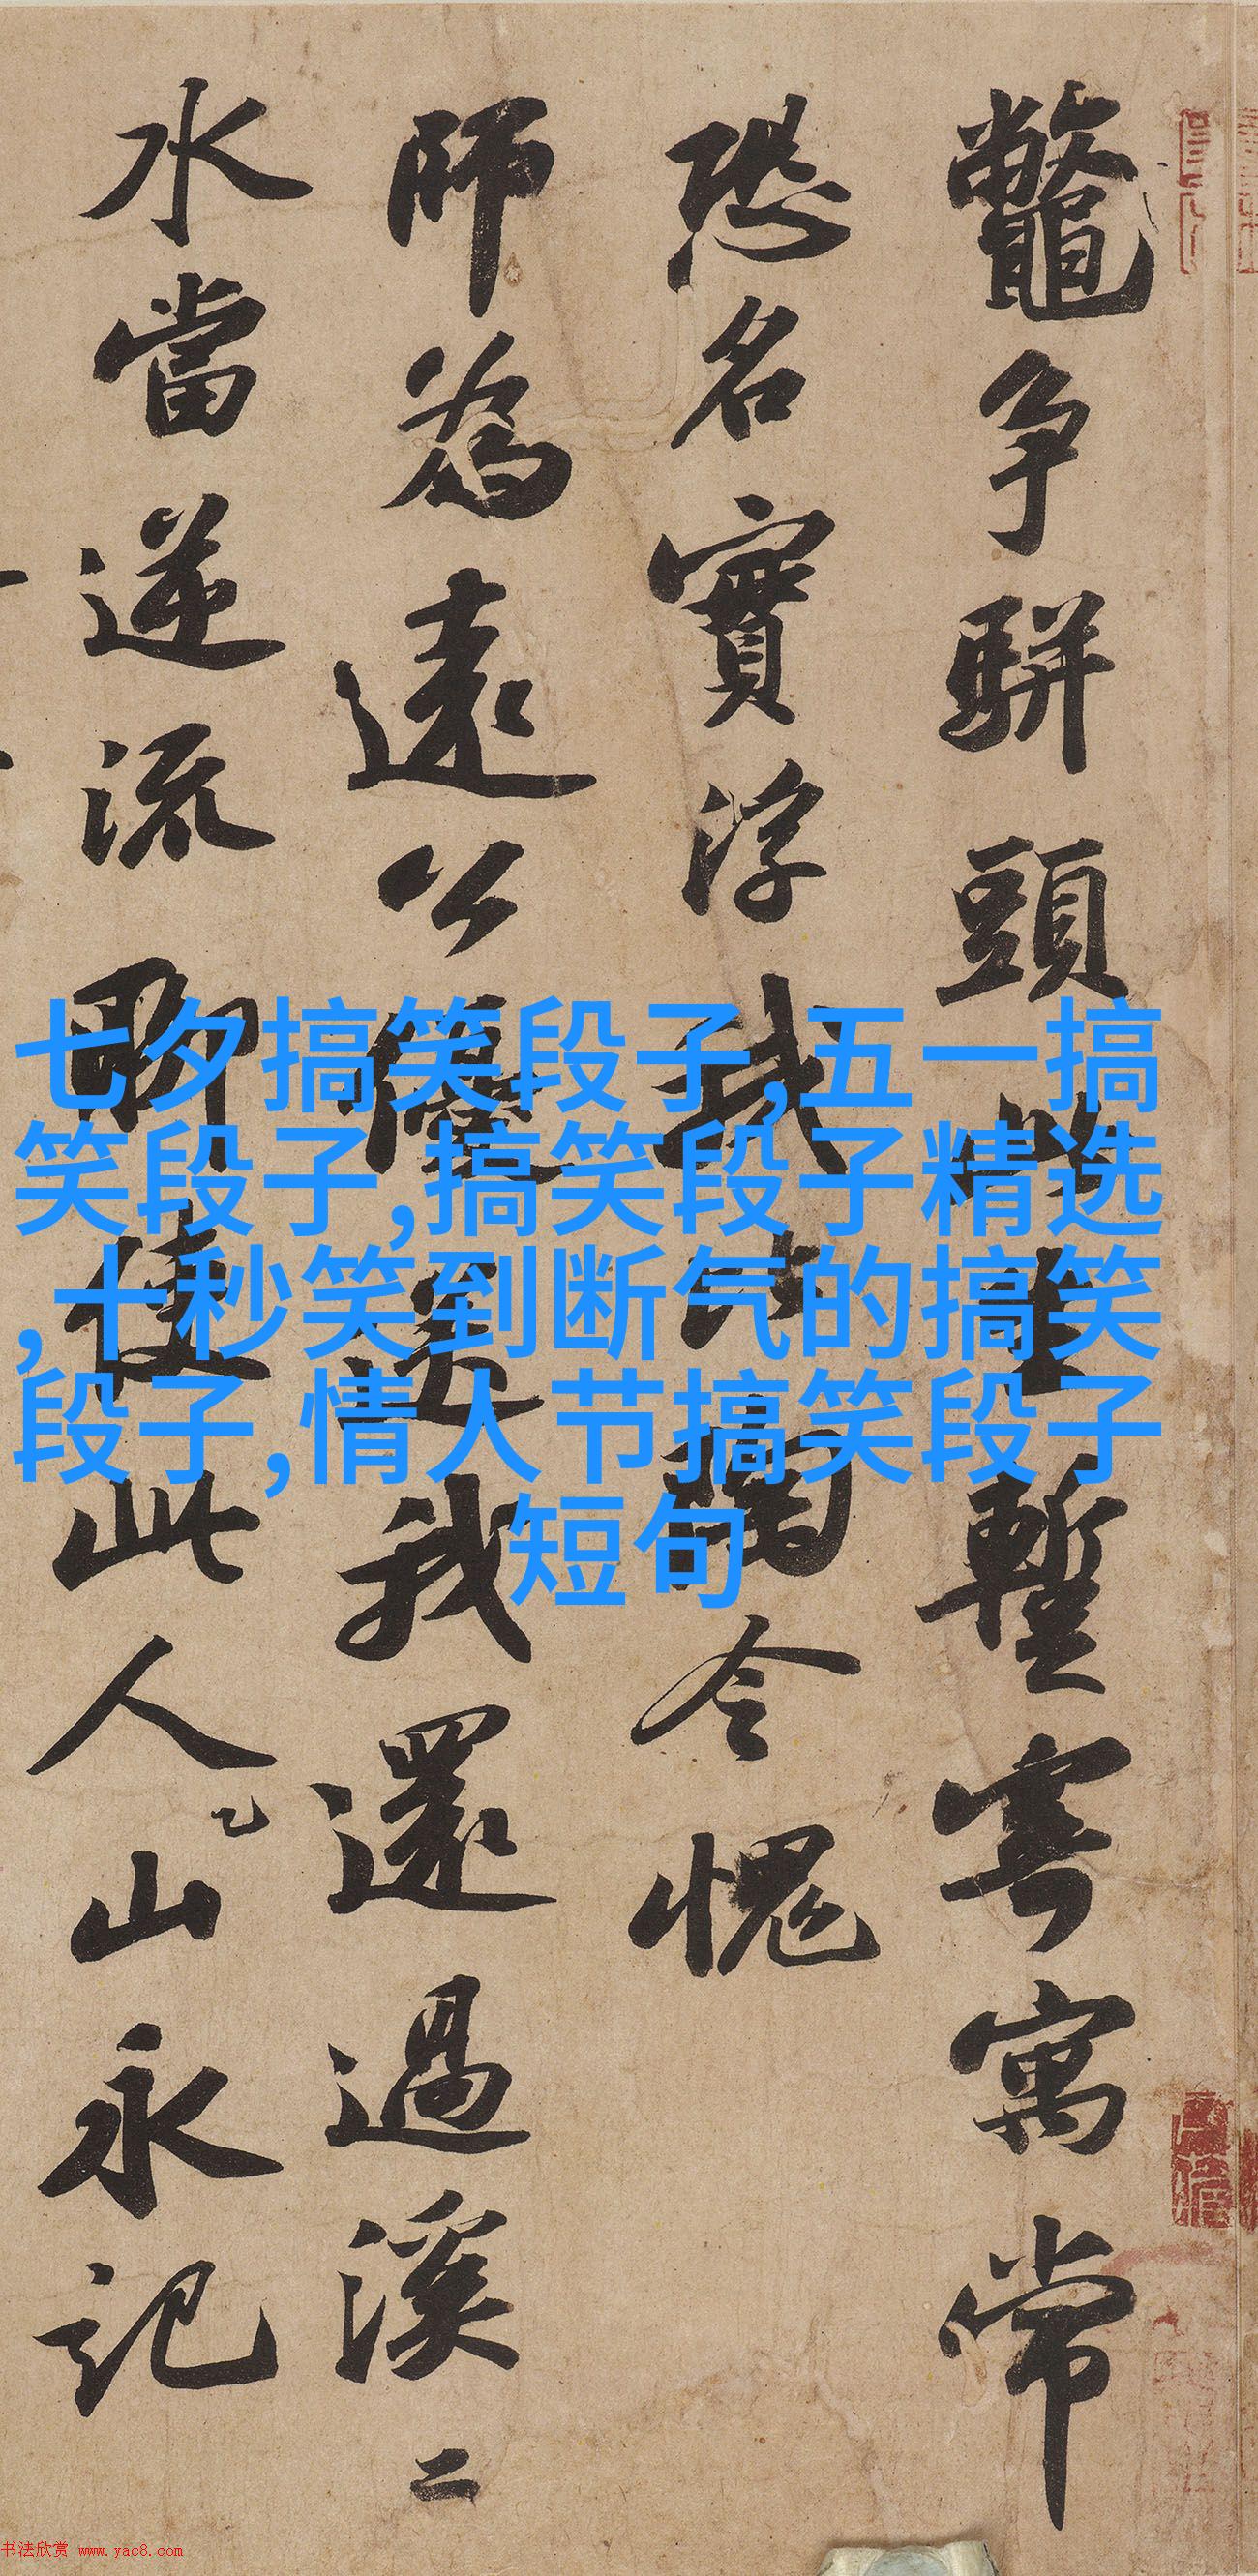 鼈争駢頭
暫寄寓常
恐名實浮我
令愧
師為遠公優
我還過溪二
水當逆流聊使此人山永記
七夕搞笑段子,五一搞
笑段子,搞笑段子精选
,十秒笑到断气的搞笑
段子,情人节搞笑段子
短句
书法欣赏 www.yac8.com